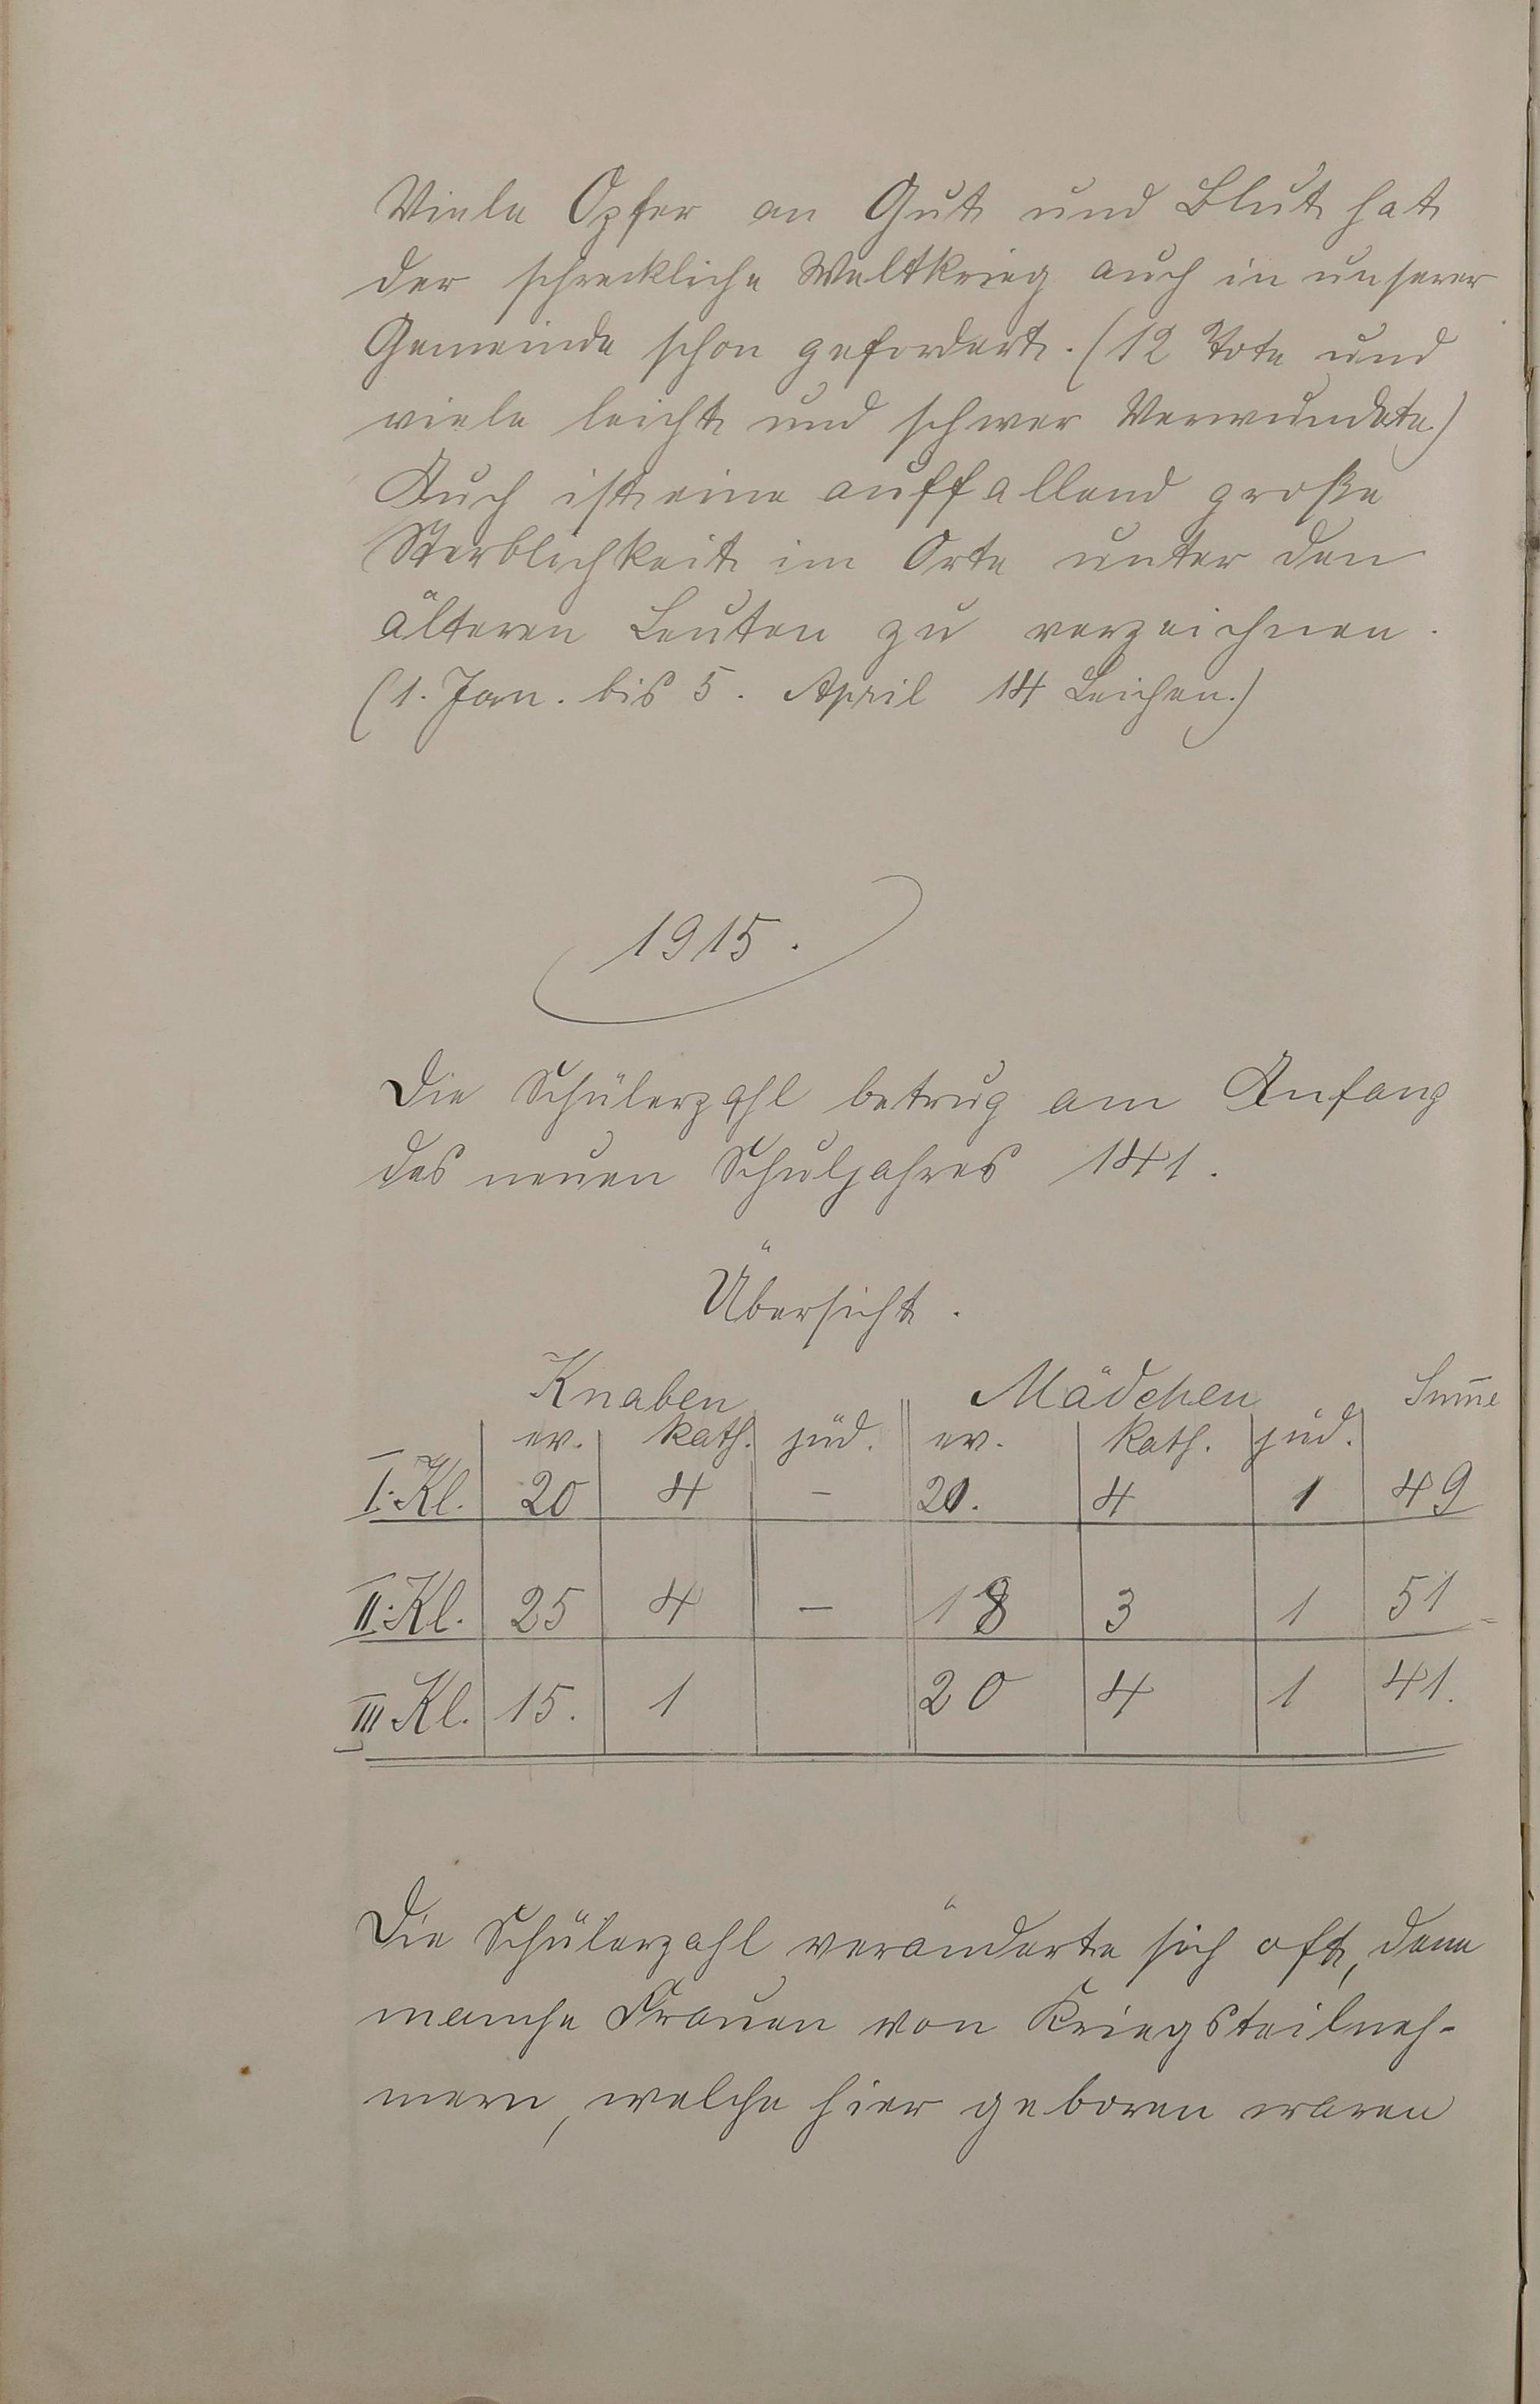 Viele Opfer an Gut und Blut hat
der schreckliche Weltkrieg auch in unserer
Gemeinde schon gefordert. (12 Tote und
viele leicht und schwer Verwundete)
Auch ist eine auffallend große
Sterblichkeit im Orte unter den
älteren Leuten zu verzeichnen.
(1. Jan. bis 5. April 14 Leichen.)
1915.
Die Schülerzahl betrug am Anfang
des neuen Schuljahres 141.
Übersicht.
Knaben Mädchen Sum̅e
ev. kath. jüd. ev. kath. jüd.
I. Kl. 20 4 – 20. 4 1 49
II. Kl. 25 4 – 18 3 1 51
III Kl. 15. 1 20 4 1 41.
Die Schülerzahl veränderte sich oft, denn
manche Frauen von Kriegsteilneh-
mern, welche hier geboren waren